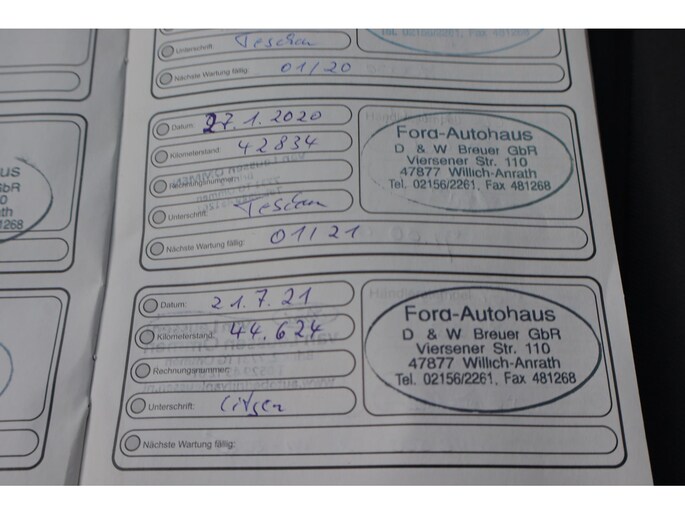 Tel. 02156/2261, Fax 481268
Unterschrift: Teschen
Nächste Wartung fällig: 01/20
Datum: 27.1.2020
Kilometerstand: 42834
Rechnungsnummer:
Unterschrift:
Nächste Wartung fällig: 01/21
Ford-Autohaus
D & W Breuer GbR
Viersener Str. 110
47877 Willich-Anrath
Tel. 02156/2261, Fax 481268
Datum: 21.7.21
Kilometerstand: 44.624
Rechnungsnummer:
Unterschrift:
Nächste Wartung fällig:
Ford-Autohaus
D & W Breuer GbR
Viersener Str. 110
47877 Willich-Anrath
Tel. 02156/2261, Fax 481268